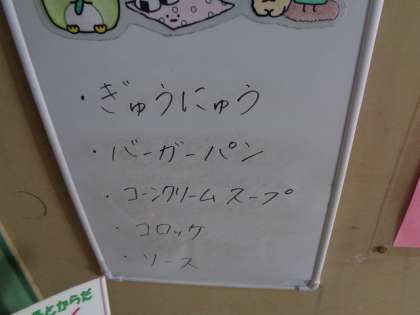 ・ぎゅうにゅう
・バーガーパン
・コーンクリームスープ
・コロッケ
・ソース
とからだ